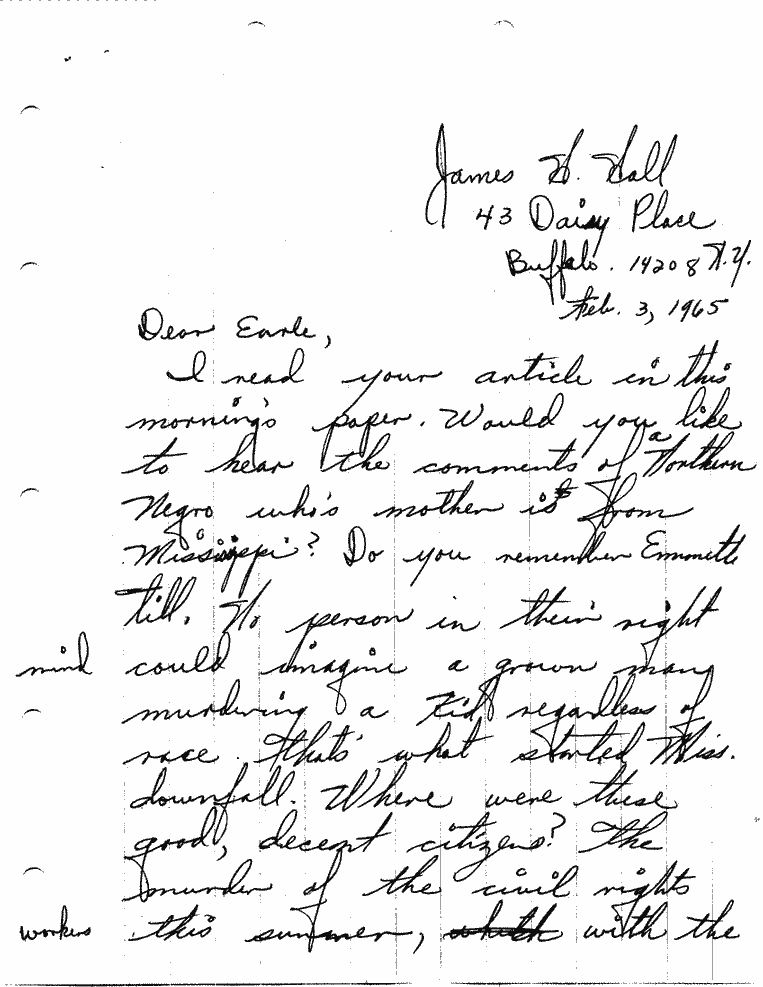 James H. Hall
43 Daisy Place
Buffalo. 14208 N.Y.
Feb. 3, 1965
Dear Earle,
I read your article in this
morning's paper. Would you like
to hear the comments of a Northern
Negro who's mother is from
Mississippi? Do you remember Emmette
till. No person in their right
mind could imagine a grown man
murdering a Kid regardless of
race. That's what started Miss.
downfall. Where were these
good, decent citizens? The
murder of the civil rights
workers this summer, which with the